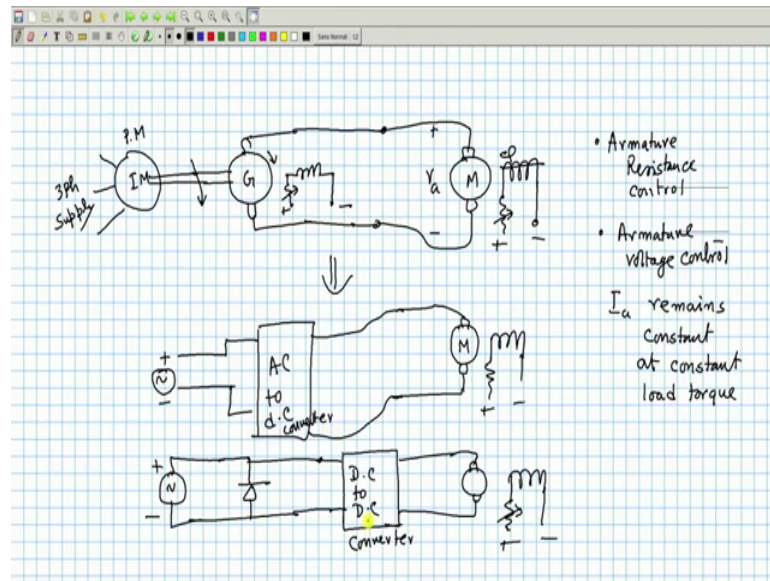 Sans Normal 12
P.M
3ph
Supply
IM
G
+
Va
-
M
+
-
• Armature
Resistance
control
• Armature
voltage control
Ia remains
constant
at constant
load torque
+
~
-
AC
to
d.c
converter
M
+
-
+
~
-
D.C
to
D.C
Converter
+
-